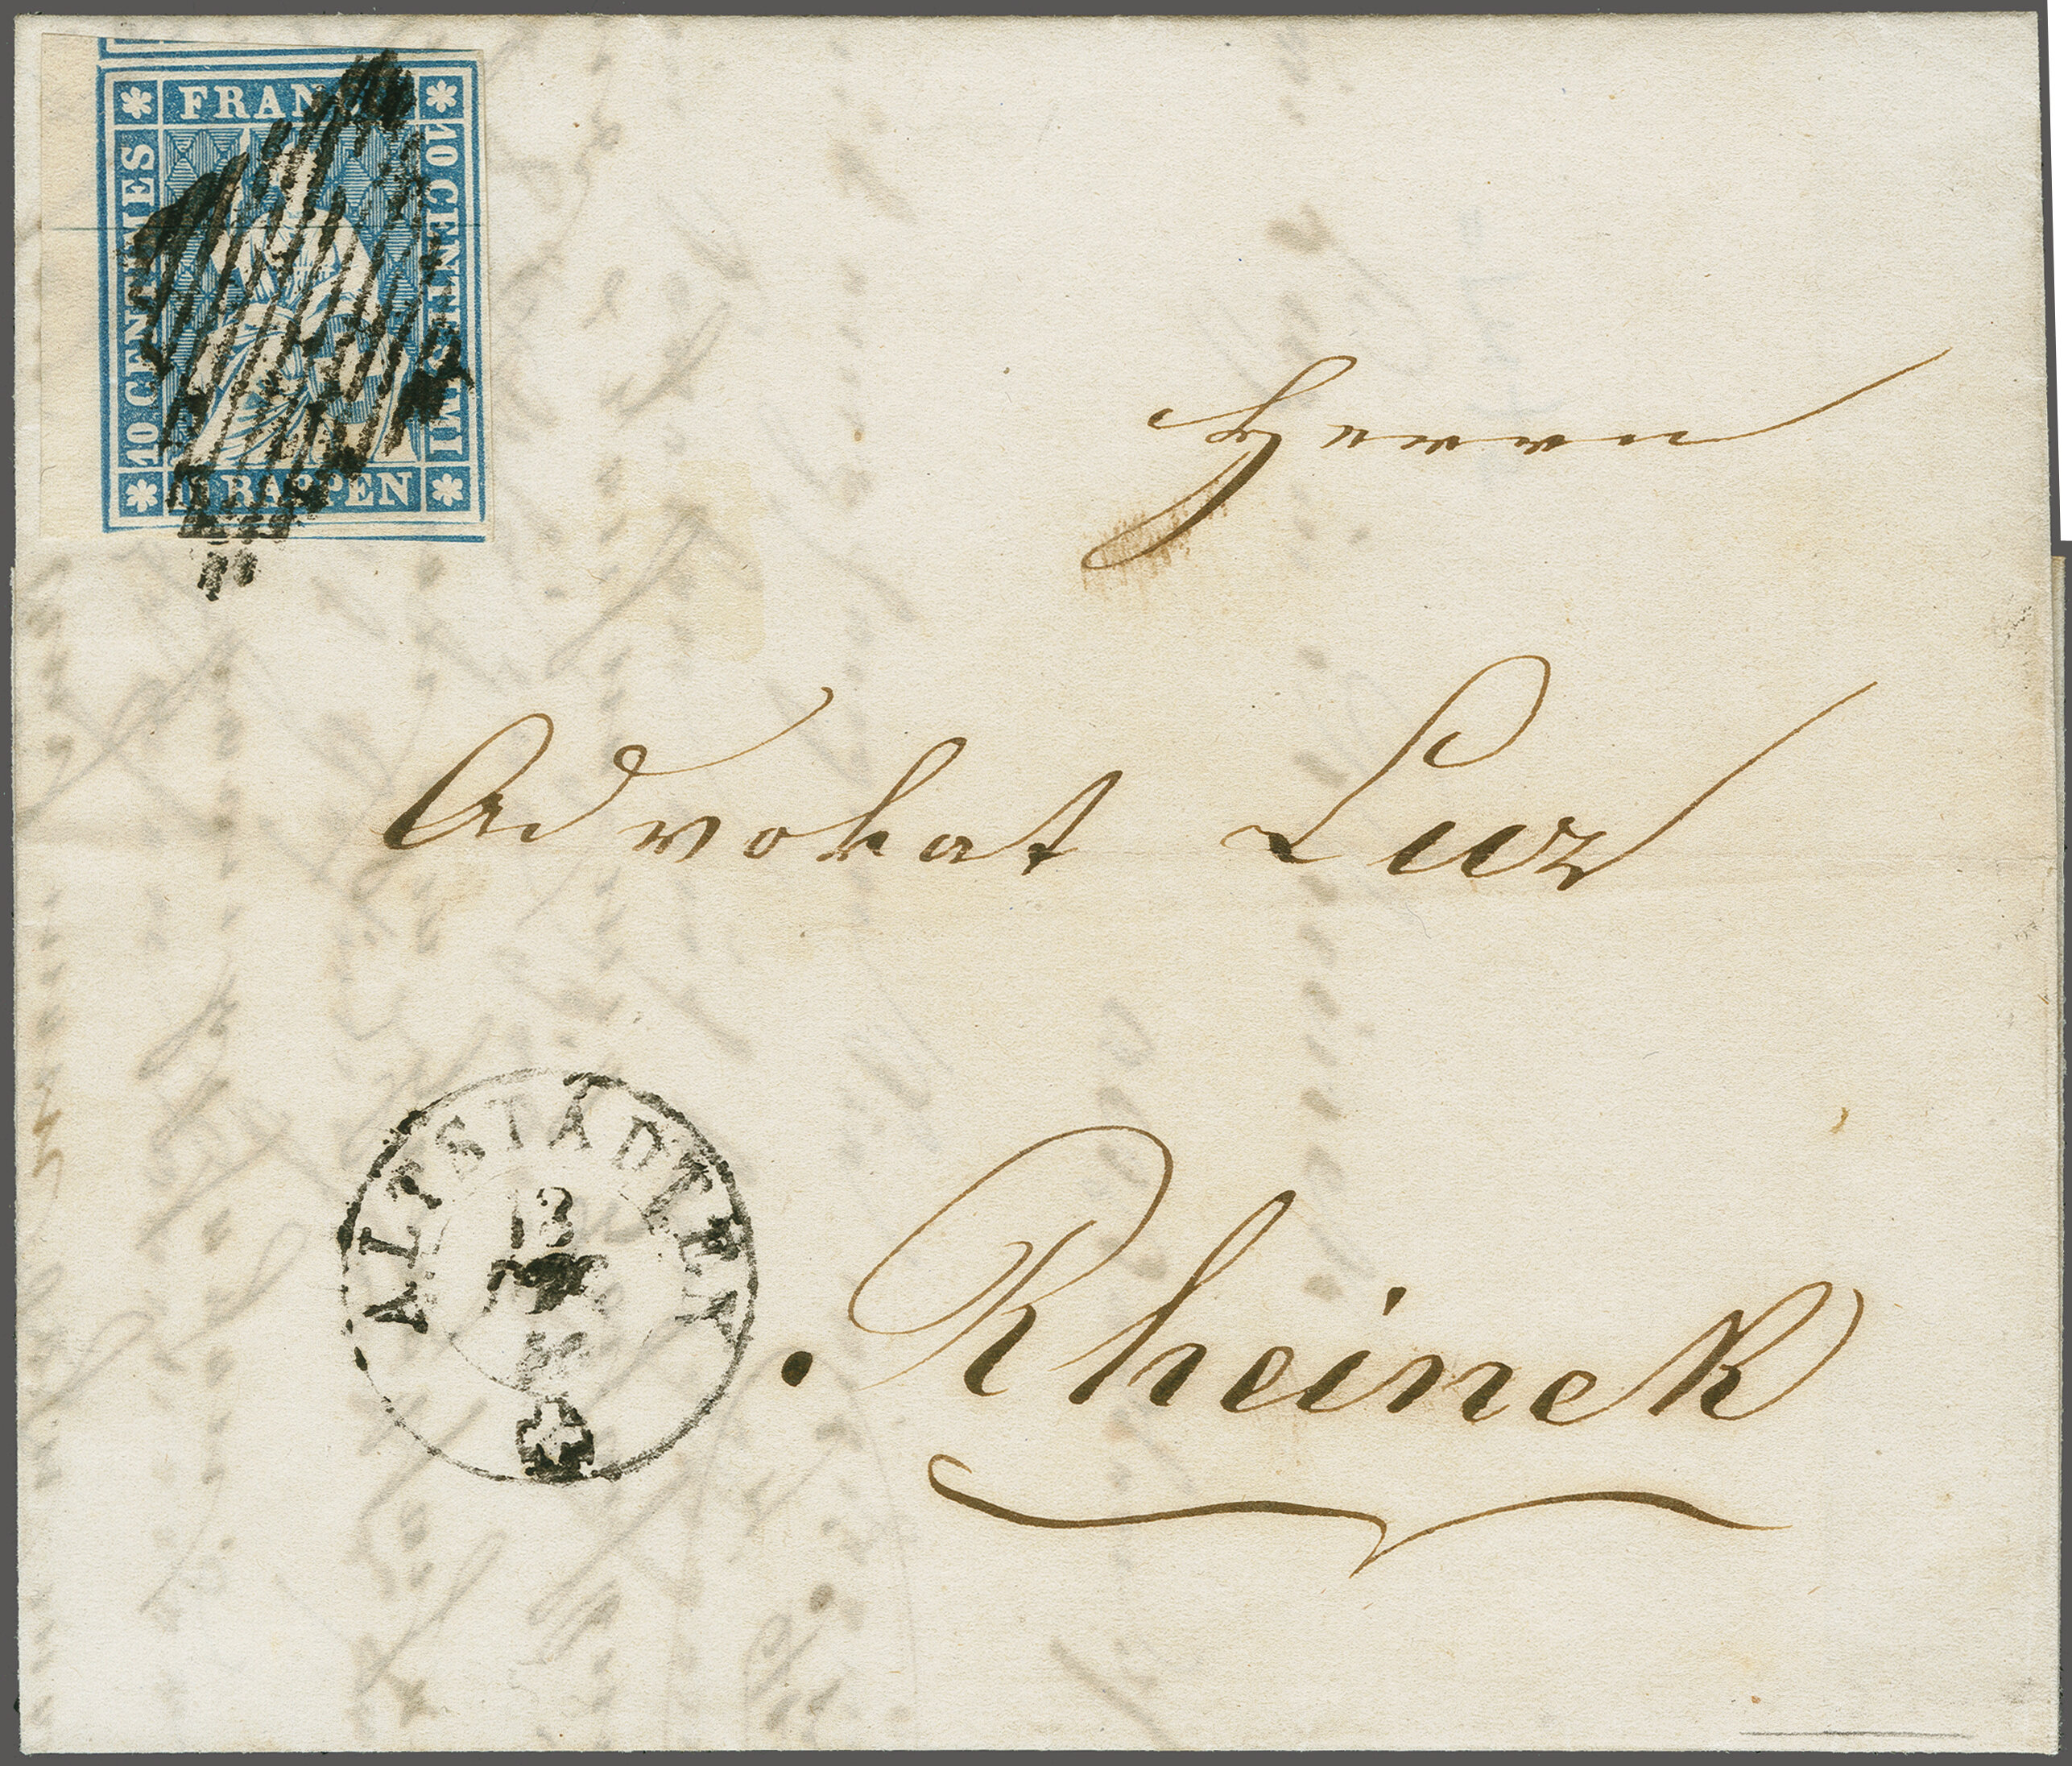 FRANCO
10 CENTIMES
10 CENTESIMI
10 RAPPEN
Herrn
Advokat Luz
Rheineck
ALTSTÄDTEN
13